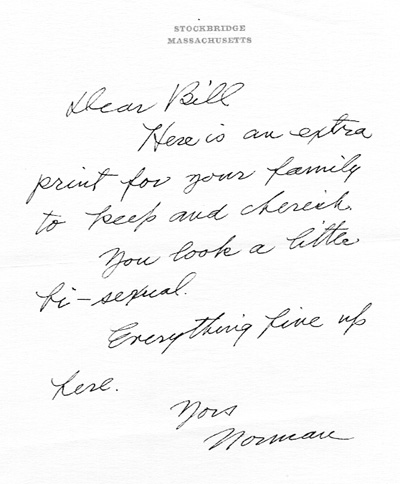 STOCKBRIDGE
MASSACHUSETTS
Dear Bill
Here is an extra
print for your family
to keep and cherish.
You look a little
bi-sexual.
Everything fine up
here.
Yors
Norman